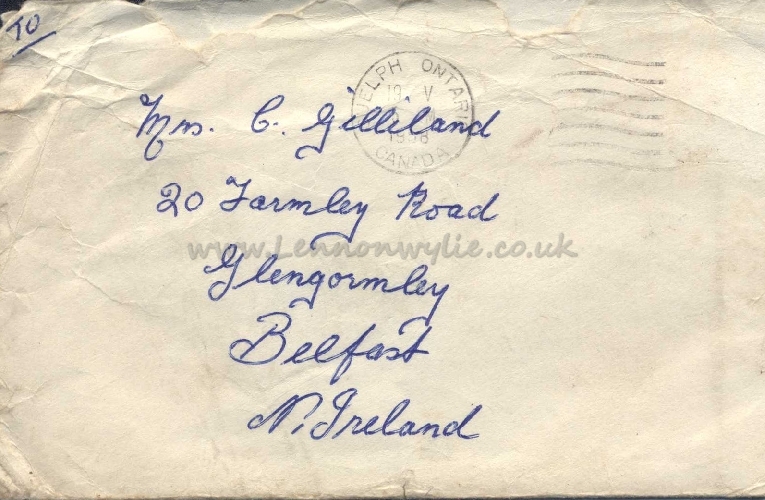 TO
ELPH ONTARI
19 V
1958
CANADA
Mrs. C. Gilliland
20 Farmley Road
www.Lennonwylie.co.uk
Glengormley
Belfast
N. Ireland